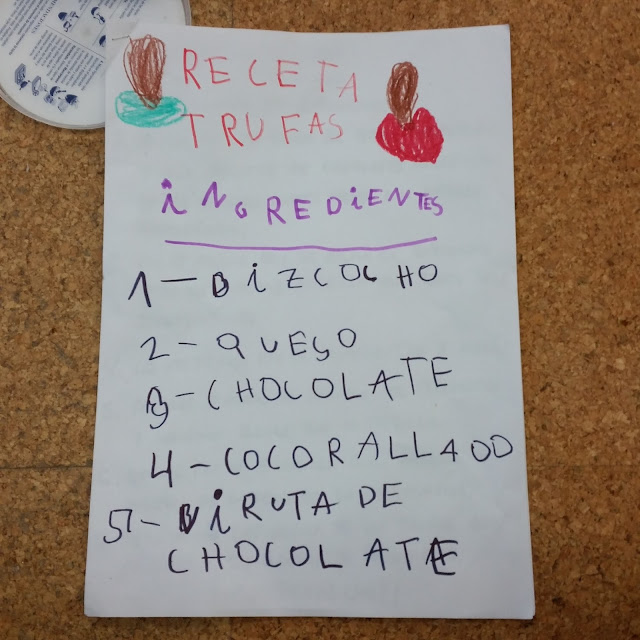 RECETA
TRUFAS
iNGREDiENTES
1 - BiZCOCHO
2 - QUESO
3 - CHOCOLATE
4 - COCORALLADO
5 - ViRUTA DE
CHOCOLATE